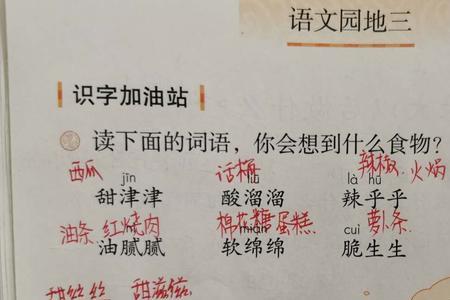 语文园地三
识字加油站
读下面的词语，你会想到什么食物？
西瓜 话桶 辣椒 火锅
jīn là hū
甜津津 酸溜溜 辣乎乎
油条 红烧肉 棉花糖 蛋糕 萝卜条
mián cuì
油腻腻 软绵绵 脆生生
甜丝丝 甜滋滋